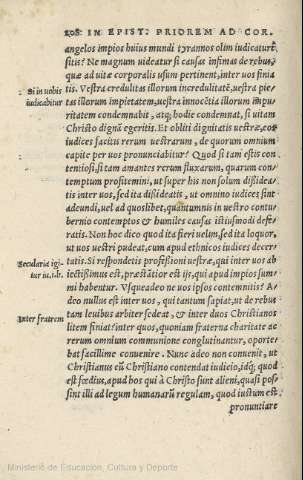 208. IN EPIST. PRIOREM AD COR.
angelos impios huius mundi tyrannos olim iudicaturi
sitis? Ne magnum uideatur si causas infimas de rebus,
quæ ad uitæ corporalis usum pertinent, inter uos finia
Si in uobis
tis. Vestra credulitas illorum incredulitatẽ, uestra pie-
iudicabitur
tas illorum impietatem, uestra innocẽtia illorum impu
ritatem condemnabit, atq; hodie condemnat, si uitam
Christo dignã egeritis. Et obliti dignitatis uestræ, eos
iudices facitis rerum uestrarum, de quorum omnium
capite per uos pronunciabitur? Quod si tam estis con
tentiosi, si tam amantes rerum fluxarum, quarum con-
temptum profitemini, ut super his non solum dissidea-
tis inter uos, sed ita dissideatis, ut omnino iudices sint
adeundi, uel ad quoslibet, quantumuis in uestro contu-
bernio contemptos & humiles causas istiusmodi defe-
ratis. Non hoc dico quod ita fieri uelim, sed ita loquor,
ut uos uestri pudeat, cum apud ethnicos iudices decer-
Secularia igi
tatis. Si respondetis professioni uestræ, qui inter uos ab
tur iu. &c.
iectissimus est, præstantior est ijs, qui apud impios sum-
mi habentur. Vsqueadeo ne uos ipsos contemnitis? A
deo nullus est inter uos, qui tantum sapiat, ut de rebus
tam leuibus arbiter sedeat, & inter duos Christianos
Inter fratrem
litem finiat? inter quos, quoniam fraterna charitate ac
rerum omnium communione conglutinantur, oporte-
bat facillime conuenire. Nunc adeo non conuenit, ut
Christianus cũ Christiano contendat iudicio, idq; quod
est fœdius, apud hos qui à Christo sunt alieni, quasi pos-
sint illi ad legum humanarũ regulam, quod iustum est
pronuntiare
Ministerio de Educación, Cultura y Deporte